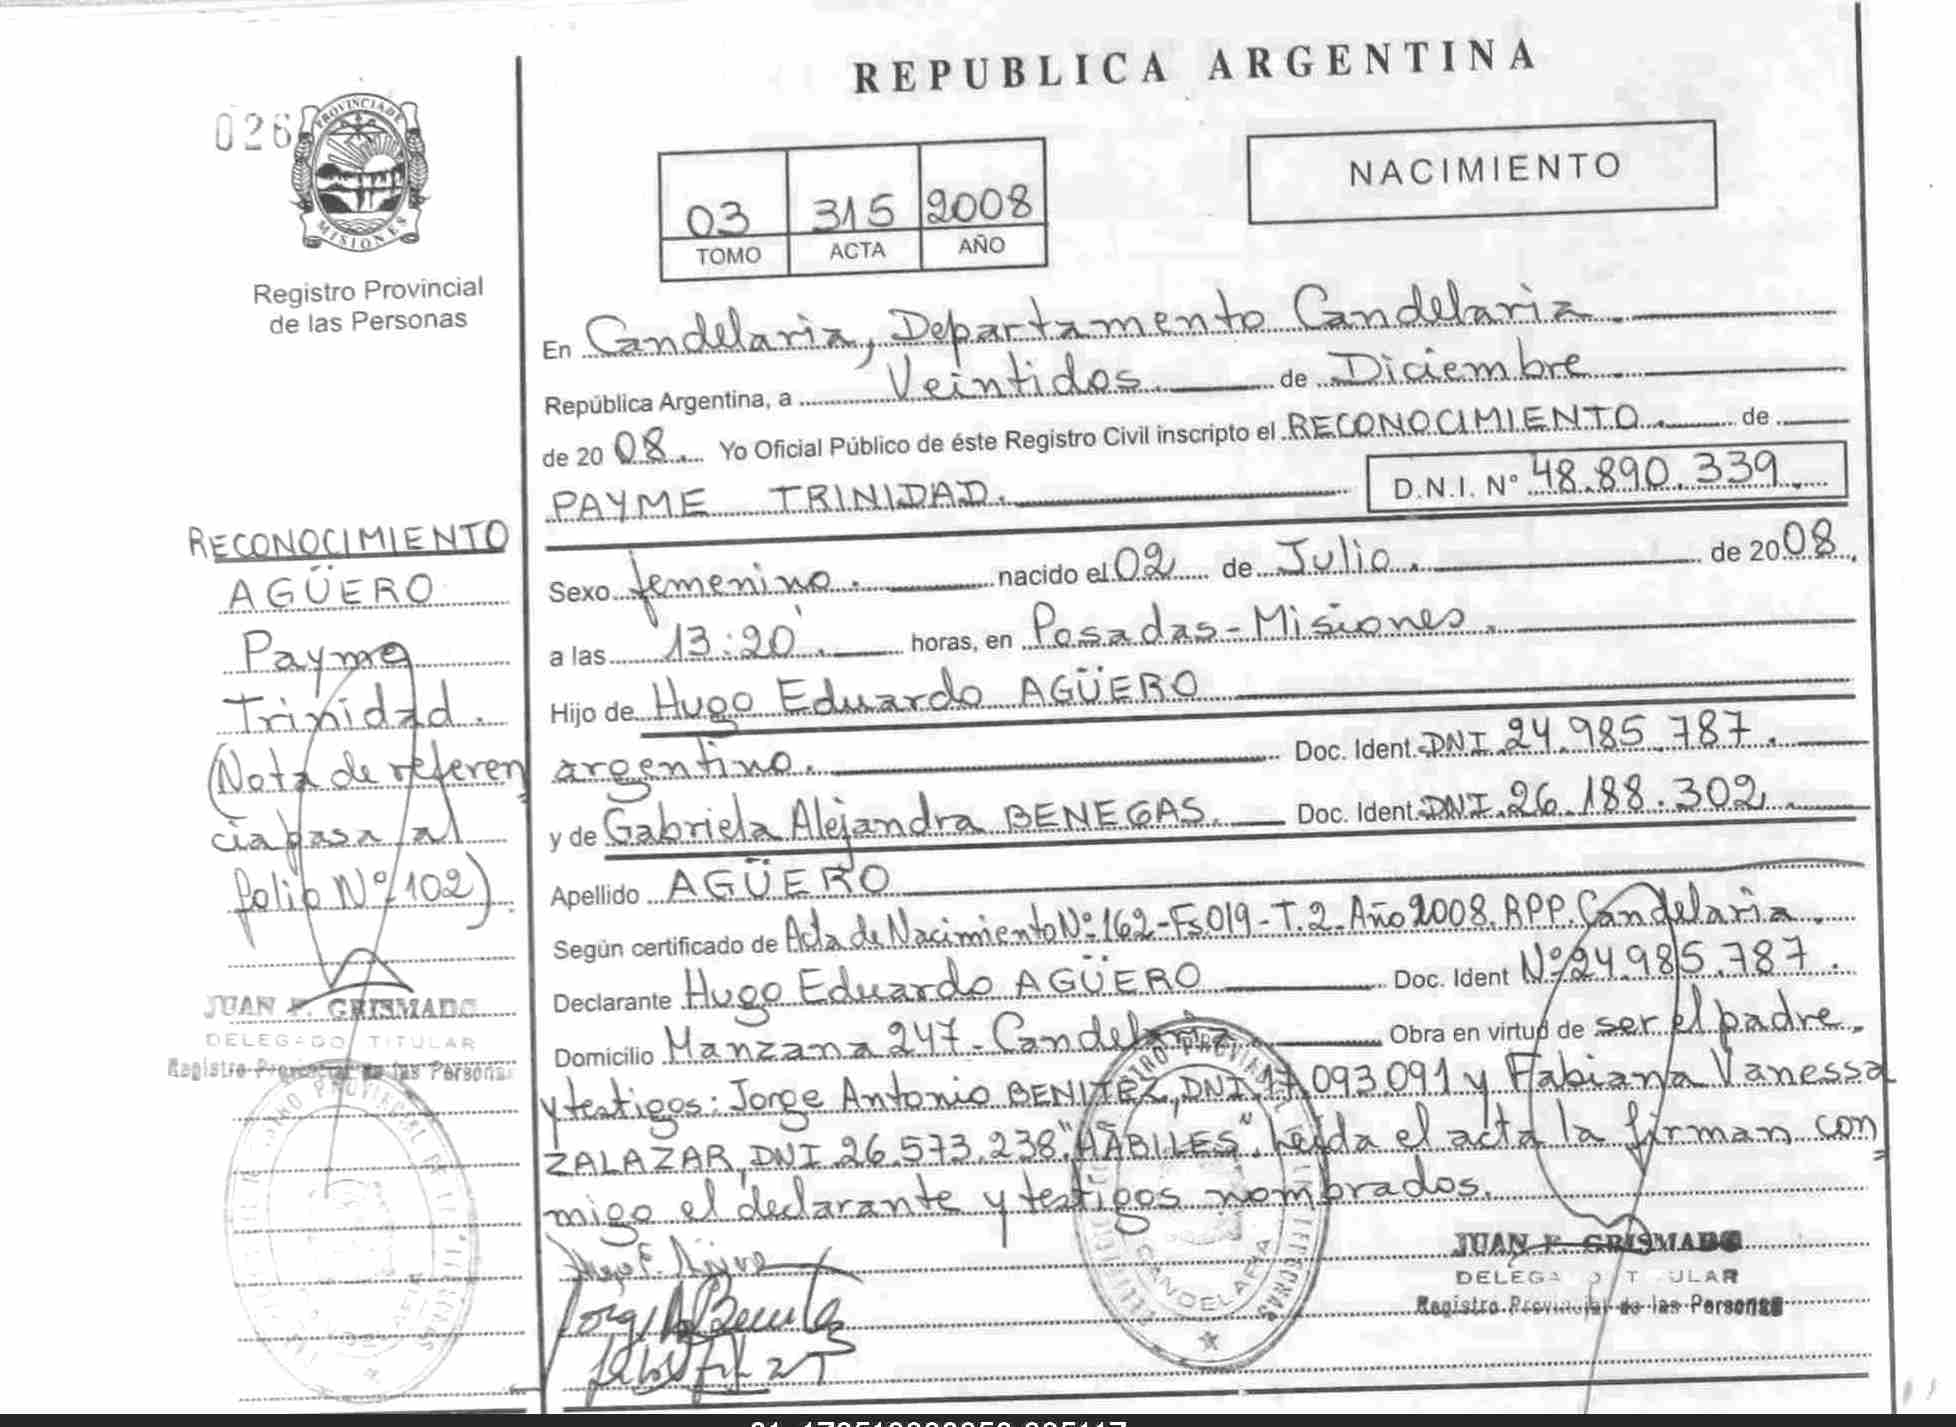 REPUBLICA ARGENTINA
026
PROVINCIA DE
MISIONES
Registro Provincial
de las Personas
03 315 2008
TOMO ACTA AÑO
NACIMIENTO
En Candelaria, Departamento Candelaria.
República Argentina, a Veintidos. de Diciembre
de 2008. Yo Oficial Público de éste Registro Civil inscripto el RECONOCIMIENTO. de
PAYME TRINIDAD. D.N.I. N° 48.890.339.
Sexo femenino. nacido el 02 de Julio. de 2008.
a las 13:20'. horas, en Posadas-Misiones.
Hijo de Hugo Eduardo AGÜERO
argentino. Doc. Ident. DNI 24.985.787.
y de Gabriela Alejandra BENEGAS. Doc. Ident. DNI.26.188.302.
Apellido AGÜERO
Según certificado de Acta de Nacimiento Nº162-Fs019-T.2.Año2008.RPP.Candelaria.
Declarante Hugo Eduardo AGÜERO Doc. Ident Nº24.985.787.
Domicilio Manzana 247-Candelaria Obra en virtud de ser el padre.
y testigos: Jorge Antonio BENITEZ, DNI.17.093.091 y Fabiana Vanessa
ZALAZAR, DNI 26.573.238."HÁBILES". Leída el acta la firman con=
migo el declarante y testigos nombrados.
RECONOCIMIENTO
AGÜERO
Payme
Trinidad.
(Nota de referen=
cia pasa al
folio Nº 102).
JUAN F. GRISMADO
DELEGADO TITULAR
Registro Provincial de las Personas
JUAN F. GRISMADO
DELEGADO TITULAR
Registro Provincial de las Personas
CANDELARIA